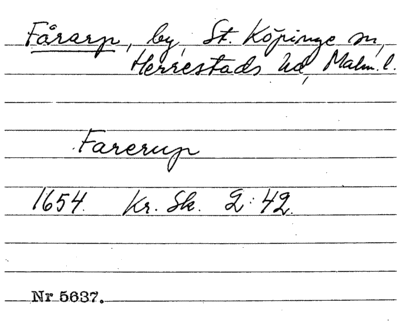 Fårarp, by, St. Köpinge sn,
Herrestads hd, Malm. l.
Farerup
1654. Kr. Sk. 2:42.
Nr 5637.